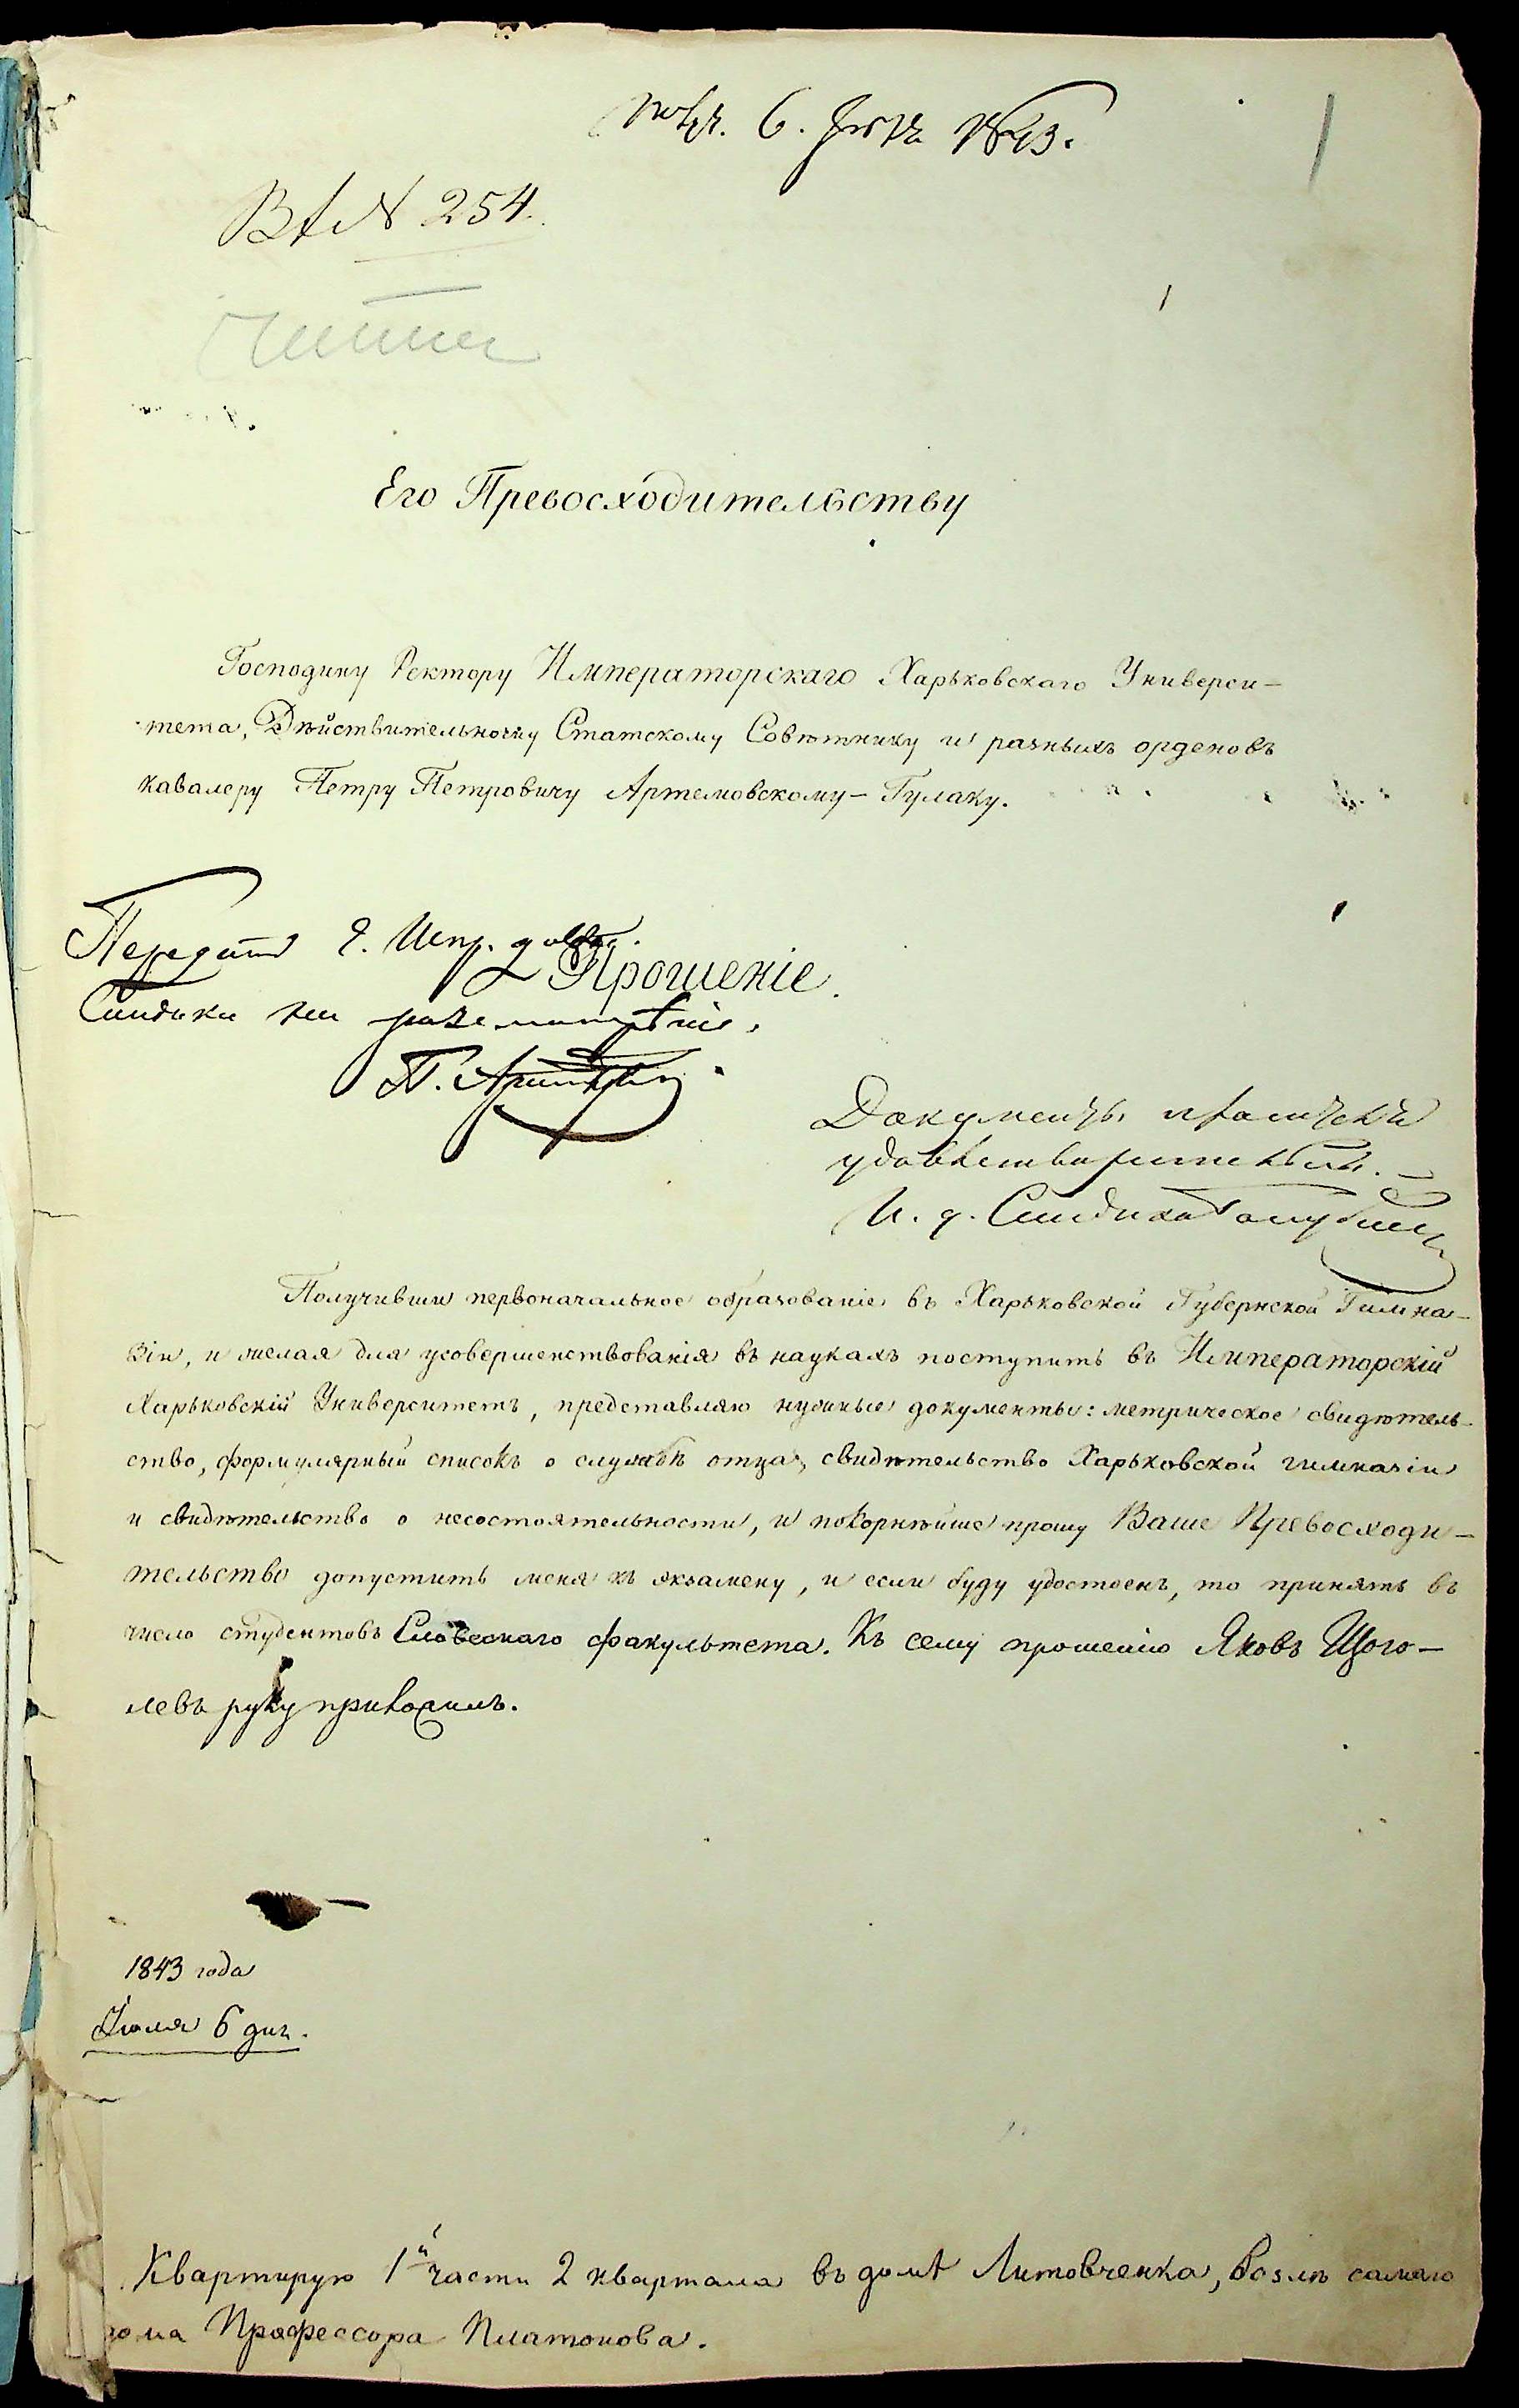 6. 1843.
1
№ 254.
Его Превосходительству
Господину Ректору Императорскаго Харьковскаго Универси-
тета, Дѣйствительному Статскому Совѣтнику и разныхъ орденовъ
кавалеру Петру Петровичу Артемовскому-Гулаку.
Передать Г. Испр. должн.
Прошеніе.
Синдика на разсмотрѣніе.
Документы
удовлетворительны.
И. д. Синдика
Получивши первоначальное образованіе въ Харьковской Губернской Гимна-
зіи, и желая для усовершенствованія въ наукахъ поступить въ Императорскій
Харьковскій Университетъ, представляю нужные документы: метрическое свидѣтель-
ство, формулярный списокъ о службѣ отца, свидѣтельство Харьковской гимназіи
и свидѣтельство о несостоятельности, и покорнѣйше прошу Ваше Превосходи-
тельство допустить меня къ экзамену, и если буду удостоенъ, то принять въ
число студентовъ Словеснаго факультета. Къ сему прошенію Яковъ Щого-
левъ руку приложилъ.
1843 года
Іюля 6 дня.
Квартирую 1й части 2 квартала въ домѣ Литовченка, возлѣ самаго
дома Профессора Платонова.